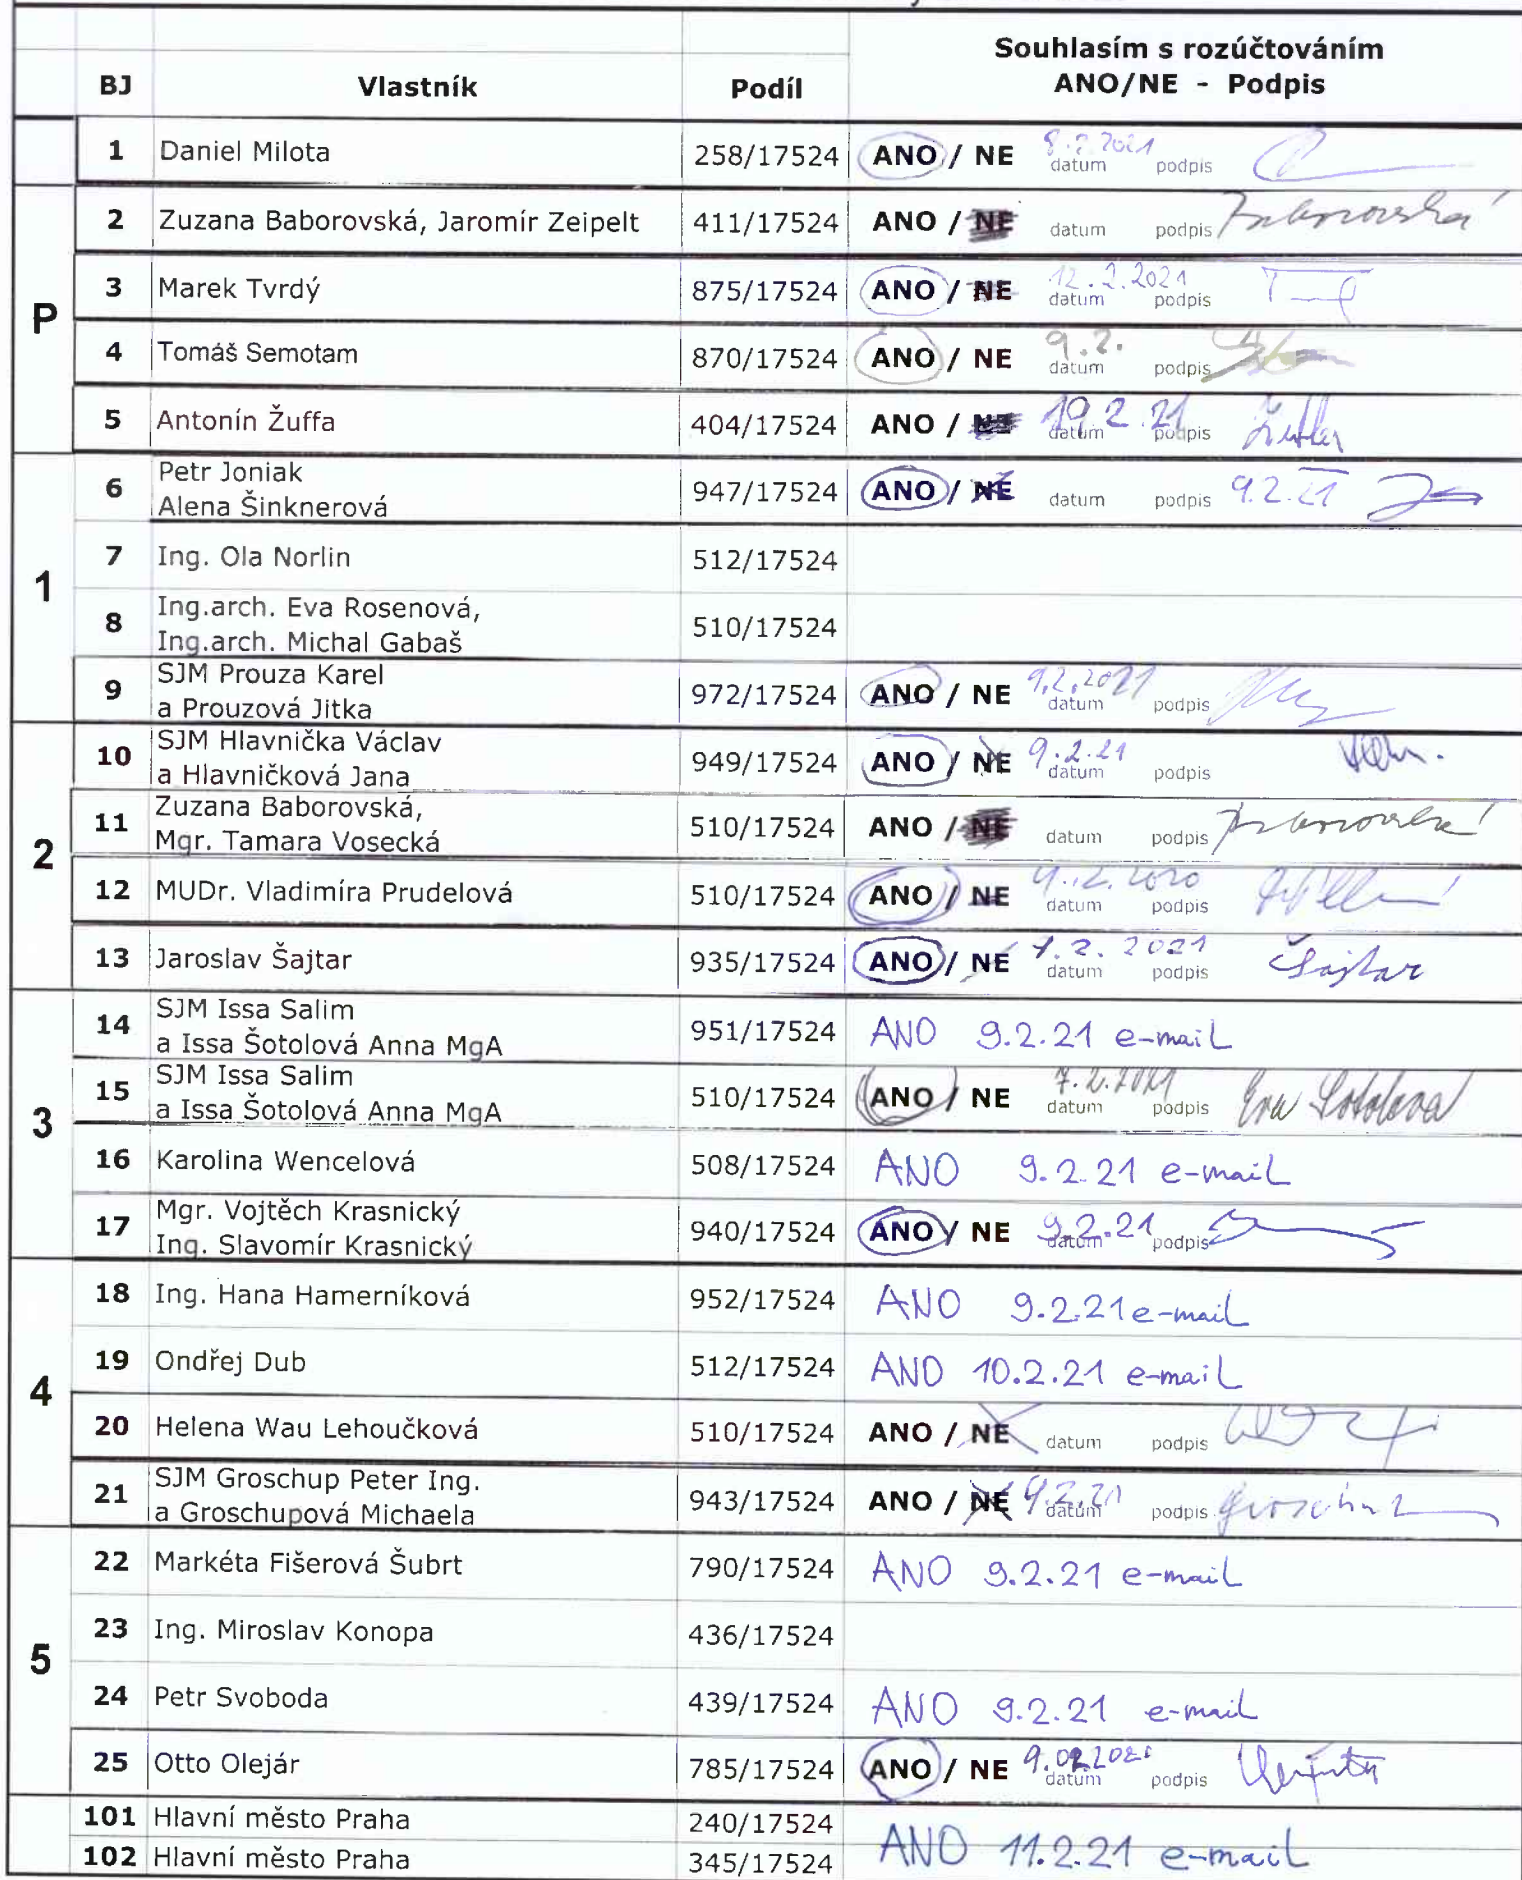 Souhlasím s rozúčtováním
BJ Vlastník Podíl ANO/NE - Podpis
1 Daniel Milota 258/17524 ANO / NE 8.2.2021 datum podpis
P
2 Zuzana Baborovská, Jaromír Zeipelt 411/17524 ANO / NE datum podpis Baborovská
3 Marek Tvrdý 875/17524 ANO / NE 12.2.2021 datum podpis
4 Tomáš Semotam 870/17524 ANO / NE 9.2. datum podpis
5 Antonín Žuffa 404/17524 ANO / NE 19.2.21 datum podpis
1
6 Petr Joniak
Alena Šinknerová 947/17524 ANO / NE datum podpis 9.2.21
7 Ing. Ola Norlin 512/17524
8 Ing.arch. Eva Rosenová,
Ing.arch. Michal Gabaš 510/17524
9 SJM Prouza Karel
a Prouzová Jitka 972/17524 ANO / NE 9.2.2021 datum podpis
2
10 SJM Hlavnička Václav
a Hlavničková Jana 949/17524 ANO / NE 9.2.21 datum podpis
11 Zuzana Baborovská,
Mgr. Tamara Vosecká 510/17524 ANO / NE datum podpis Baborovská
12 MUDr. Vladimíra Prudelová 510/17524 ANO / NE datum podpis
13 Jaroslav Šajtar 935/17524 ANO / NE 9.2. 2021 datum podpis Šajtar
3
14 SJM Issa Salim
a Issa Šotolová Anna MgA 951/17524 ANO 9.2.21 e-mail
15 SJM Issa Salim
a Issa Šotolová Anna MgA 510/17524 ANO / NE 7.2.2021 datum podpis Eva Šotolová
16 Karolina Wencelová 508/17524 ANO 9.2.21 e-mail
17 Mgr. Vojtěch Krasnický
Ing. Slavomír Krasnický 940/17524 ANO / NE 9.2.21 datum podpis
4
18 Ing. Hana Hamerníková 952/17524 ANO 9.2.21 e-mail
19 Ondřej Dub 512/17524 ANO 10.2.21 e-mail
20 Helena Wau Lehoučková 510/17524 ANO / NE datum podpis
21 SJM Groschup Peter Ing.
a Groschupová Michaela 943/17524 ANO / NE 9.2.21 datum podpis Groschup
5
22 Markéta Fišerová Šubrt 790/17524 ANO 9.2.21 e-mail
23 Ing. Miroslav Konopa 436/17524
24 Petr Svoboda 439/17524 ANO 9.2.21 e-mail
25 Otto Olejár 785/17524 ANO / NE 9.02.2021 datum podpis
101 Hlavní město Praha 240/17524
102 Hlavní město Praha 345/17524 ANO 11.2.21 e-mail